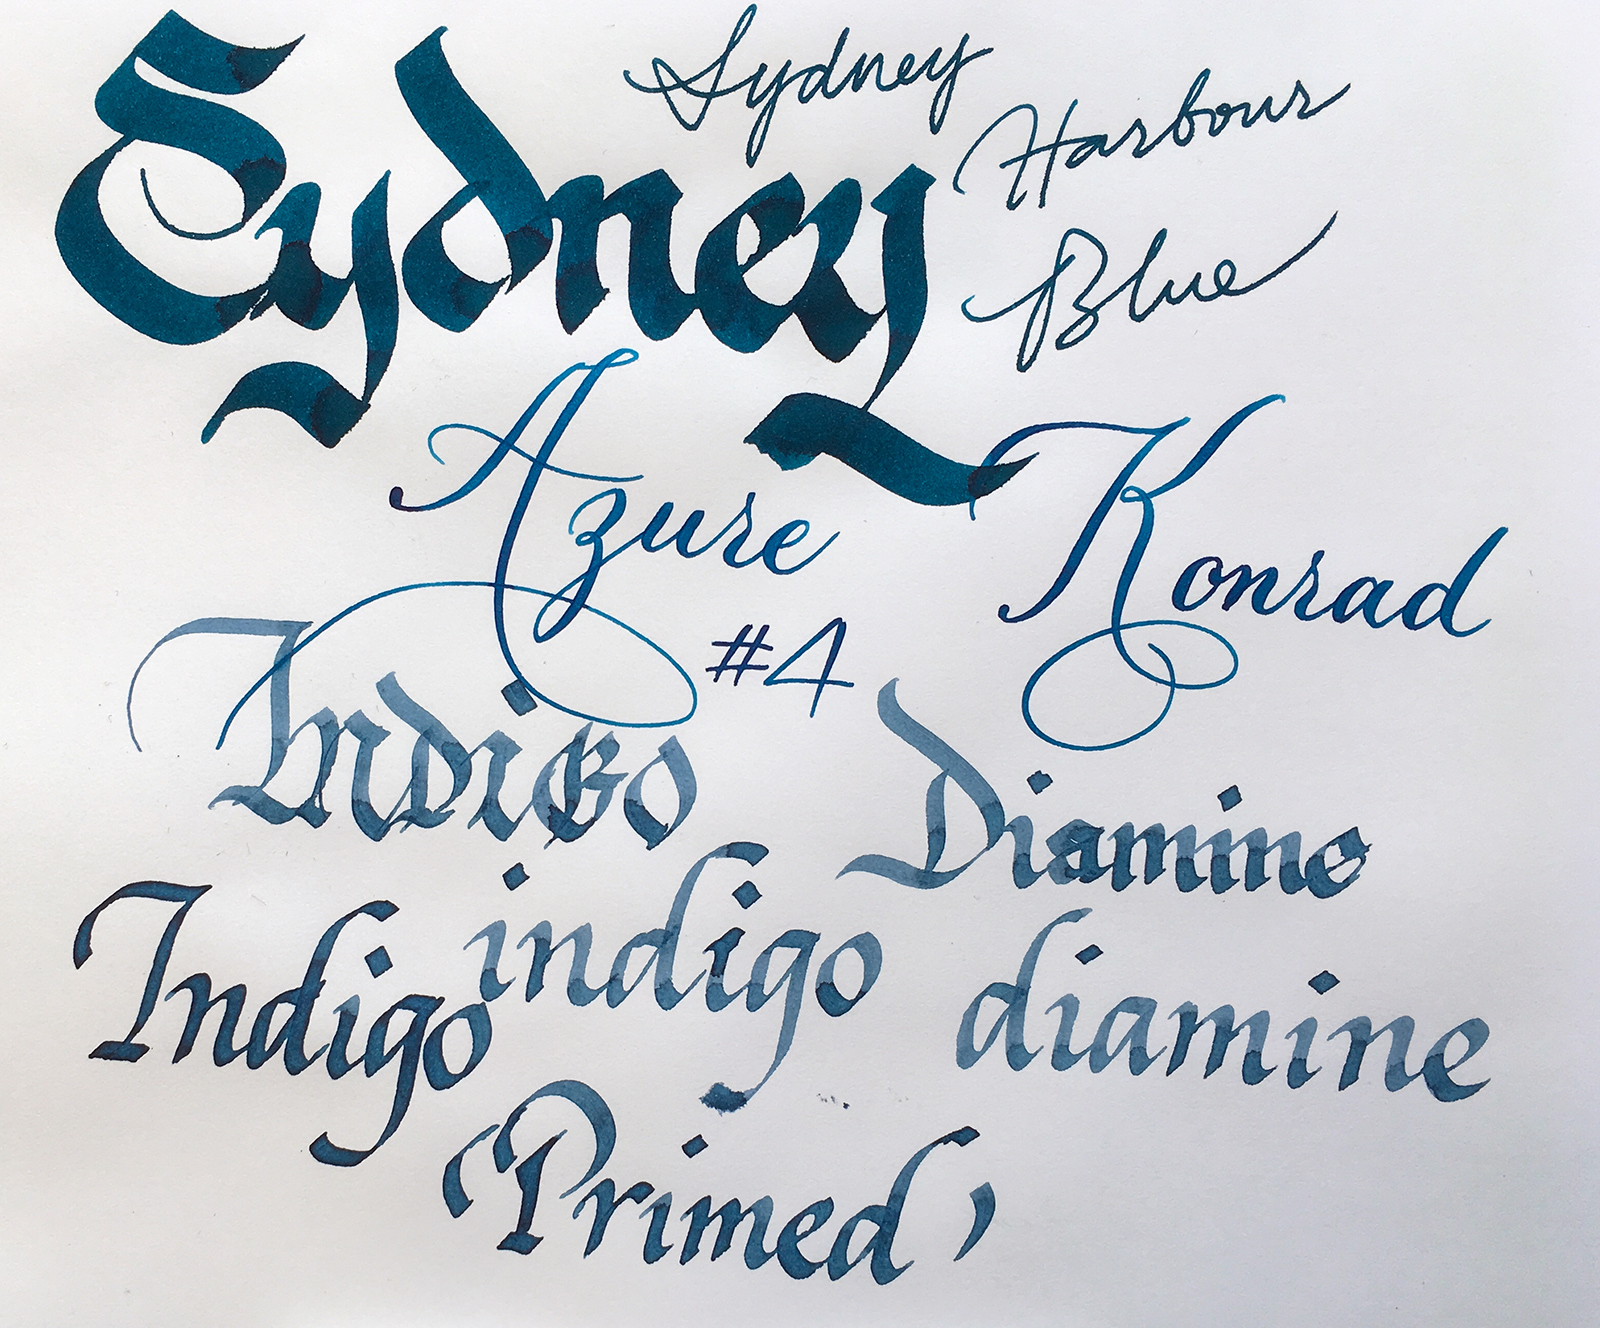 Sydney
Sydney
Harbour
Blue
Azure Konrad
#4
Indigo Diamine
indigo diamine
Indigo
(Primed)